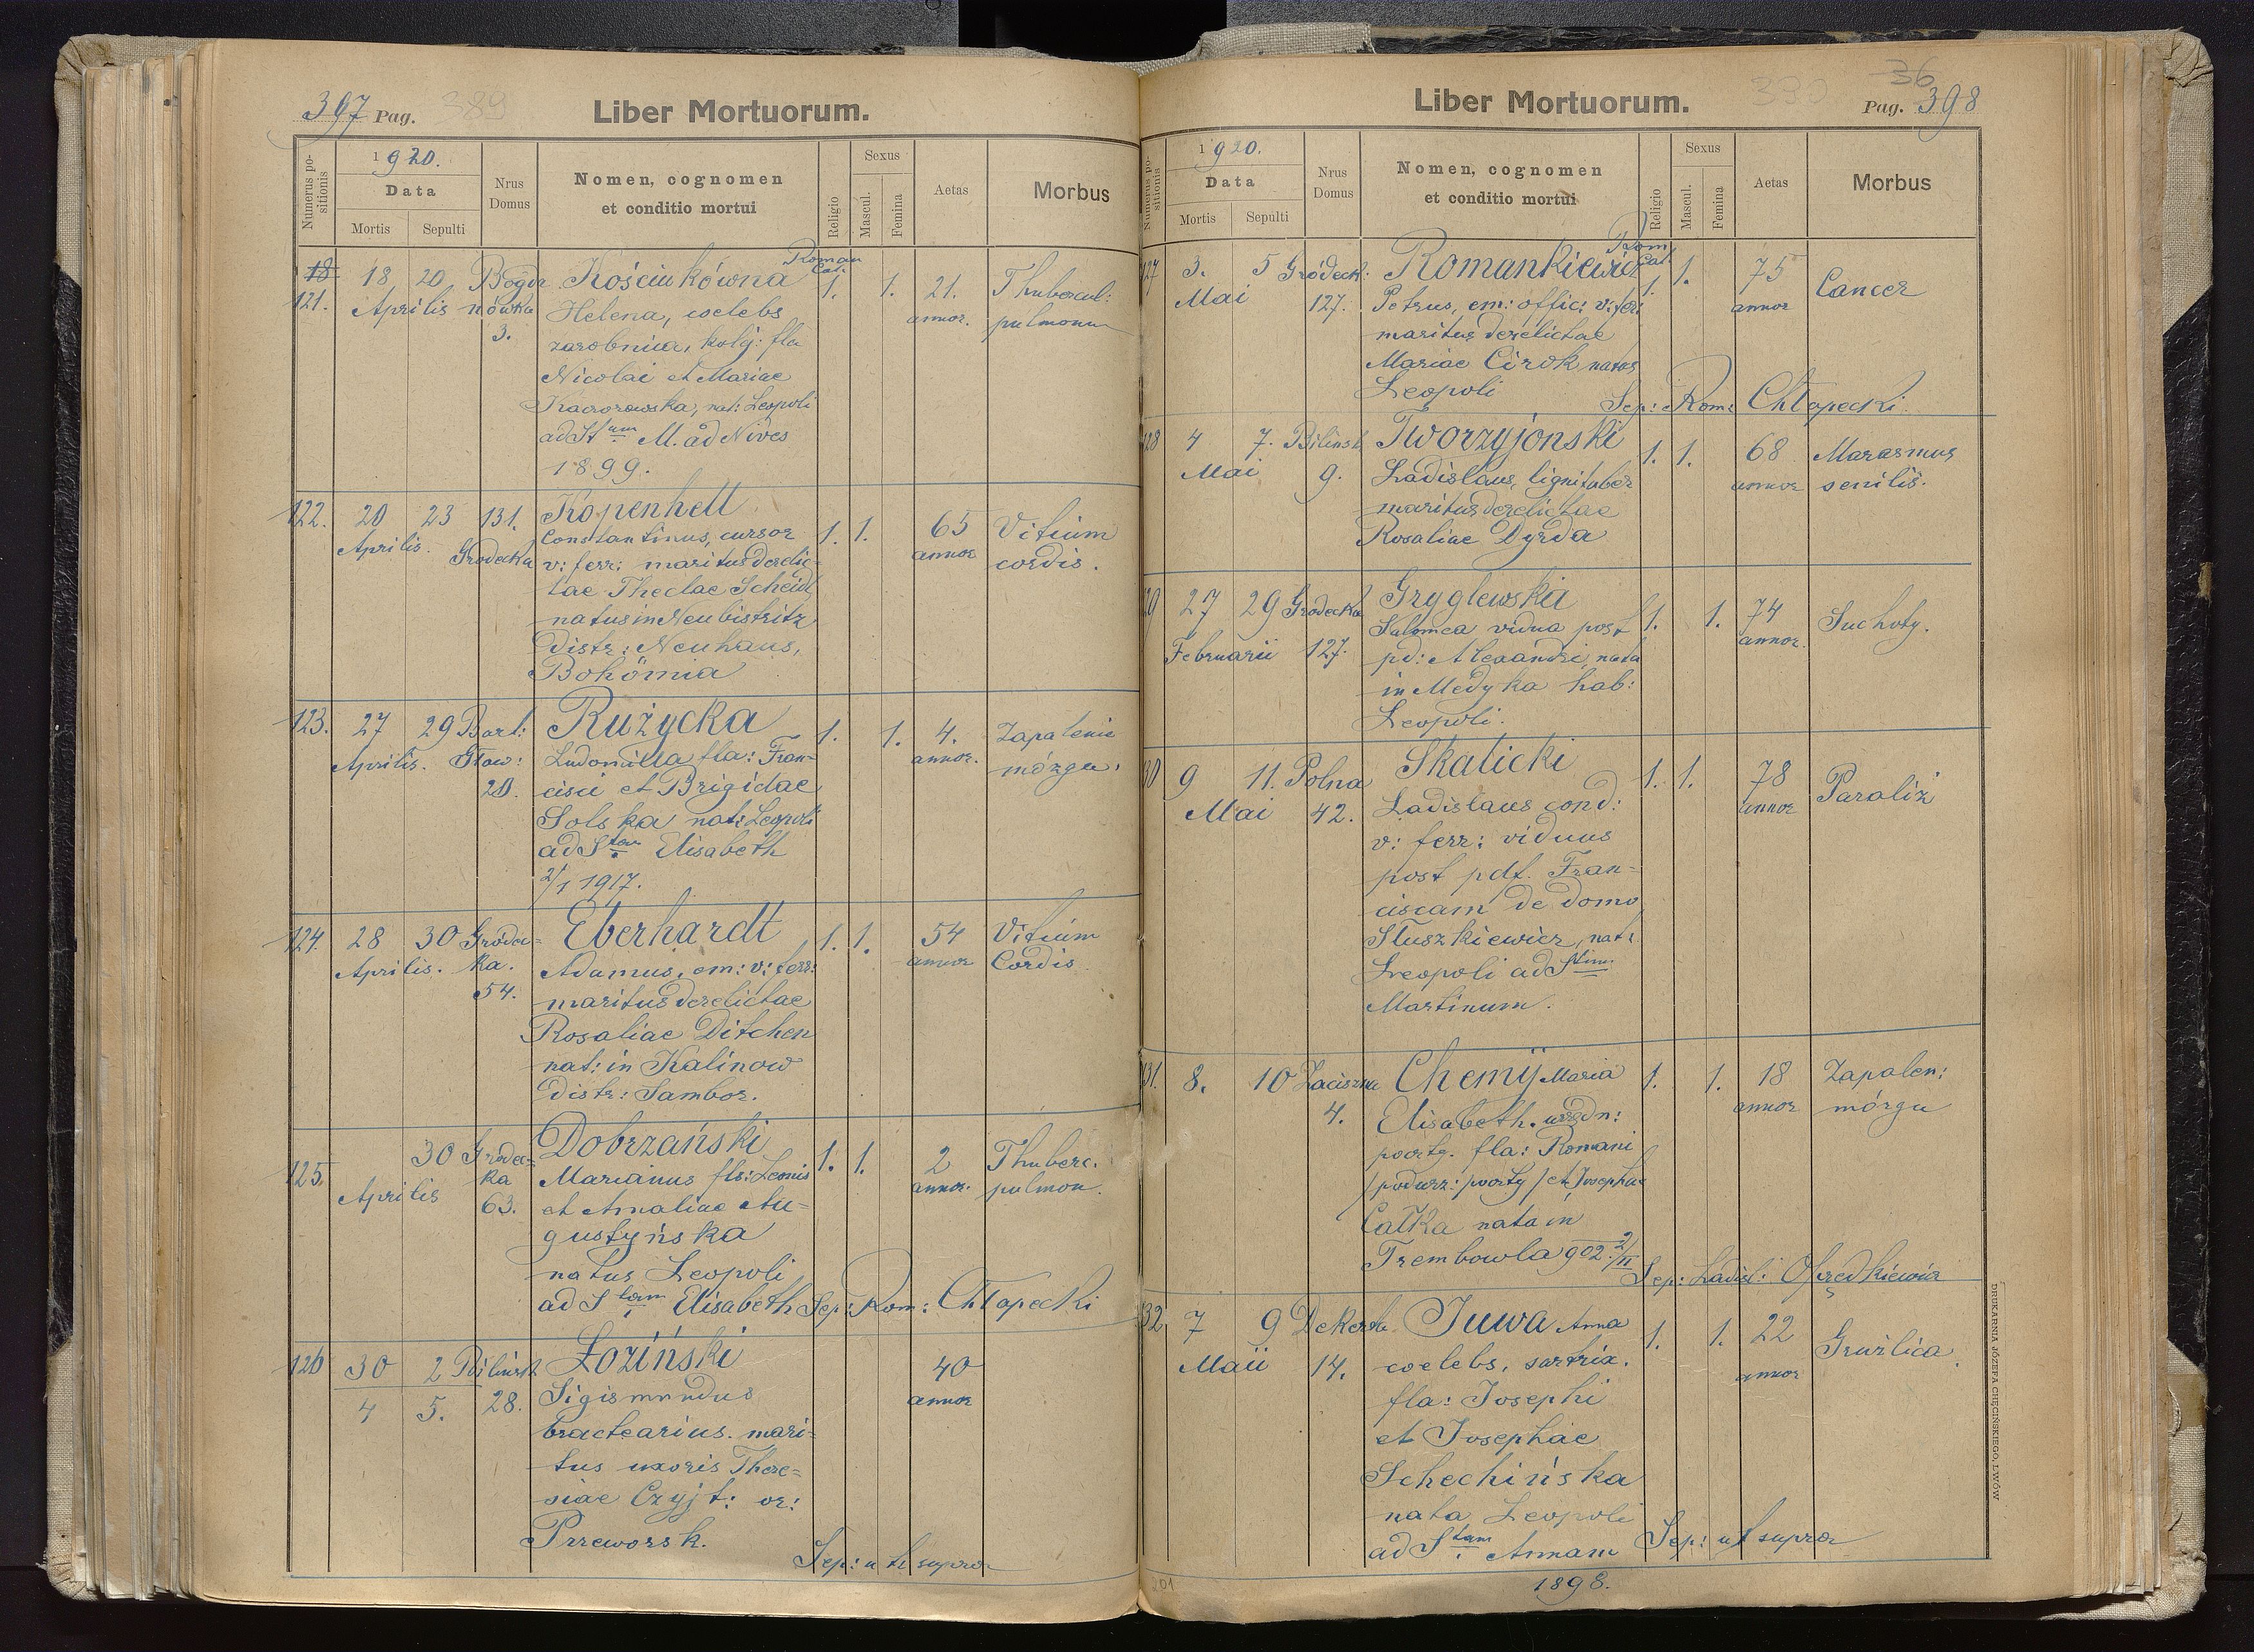 397 Pag. 389
Liber Mortuorum.
Numerus positionis
1920.
Data
Mortis Sepulti
Nrus Domus
Nomen, cognomen
et conditio mortui
Religio
Sexus
Mascul. Femina
Aetas
Morbus
18 18 20 Bogda Kościukówna Roman Cat. 1. 1. 21. Thubercul:
121. Aprilis nówka Helena, coelebs annor. pulmonum
3. zarobnica, kolej: fla
Nicolai et Mariae
Kaczorowska, nat: Leopoli
ad St am M. ad Nives
1899.
122. 20 23 131. Kopenhett 1. 1. 65 Vitium
Aprilis. Grodecka Constantinus, cursor annor cordis.
v: ferr: maritus derelic-
tae Theclae Scheidl
natus in Neubistritz
Distr: Neuhaus,
Bohömia
123. 27 29 Bart: Rużycka 1. 1. 4. Zapalenie
Aprilis. Głow: Ludomilla fla: Fran- annor. mózgu.
20. cisci et Brigidae
Solska nat: Leopoli
ad S tam Elisabeth
2/1 1917.
124. 28 30 Grodec- Eberhardt 1. 1. 54 Vitium
Aprilis. ka. Adamus, em: v: ferr: annor Cordis
54. maritus derelictae
Rosaliae Ditchen
nat: in Kalinow
Distr: Sambor.
125. 30 Grodec- Dobrzański 1. 1. 2 Thuberc.
Aprilis ka Marianus fls: Leonis annor. pulmon.
63. et Amaliae Au-
gustyńska
natus Leopoli
ad S tam Elisabeth Sep: Rom: Chłapecki
126 30 2 Bilińsk Łoziński 40
4 5. 28. Sigismundus annor
bractearius. mari-
tus uxoris There-
siae Czyjt: or:
Przeworsk.
Sep: ut supra
Liber Mortuorum.
390 36
Pag. 398
Numerus positionis
1920.
Data
Mortis Sepulti
Nrus Domus
Nomen, cognomen
et conditio mortui
Religio
Sexus
Mascul. Femina
Aetas
Morbus
127 3. 5 Gródeck. Romankiewicz Rom Cat. 1. 1. 75 Cancer
Mai 127. Petrus, em: offic: v: fer: annor
maritus derelictae
Mariae Cirok natus
Leopoli Sep: Rom: Chłapecki
128 4 7. Bilinsk Tworzyjonski 1. 1. 68 Marasmus
Mai 9. Ladislaus, lignifaber annor senilis.
maritus derelictae
Rosaliae Dyrda
29 27 29 Grodecka Gryglewska 1. 1. 74 Suchoty.
Februarii 127. Salomea vidua post annor.
pd: Alexandri, nata
in Medyka hab:
Leopoli.
30 9 11. Polna Skalicki 1. 1. 78 Paraliż
Mai 42. Ladislaus cond: annor
v: ferr: viduus
post pdf. Fran-
ciscam de domo
Słuszkiewicz, nat:
Leopoli ad S tum
Martinum.
31. 8. 10 Zaciszna Chemij Maria 1. 1. 18 Zapalen:
4. Elisabeth. urzędn: annor mózgu
poczty. fla: Romani
/podurz: poczty/ et Josephae
Całka nata in
Trembowla 902 2/II
Sep: Ladisl: Ofredkiewicz
32. 7 9 Dekerta Juwa Anna 1. 1. 22 Gruźlica.
Maii 14. coelebs, sartrix. annor
fla: Josephi
et Josephae
Schechińska
nata Leopoli
ad S tam Annam Sep: ut supra
1898.
201
DRUKARNIA JÓZEFA CHĘCIŃSKIEGO, LWÓW